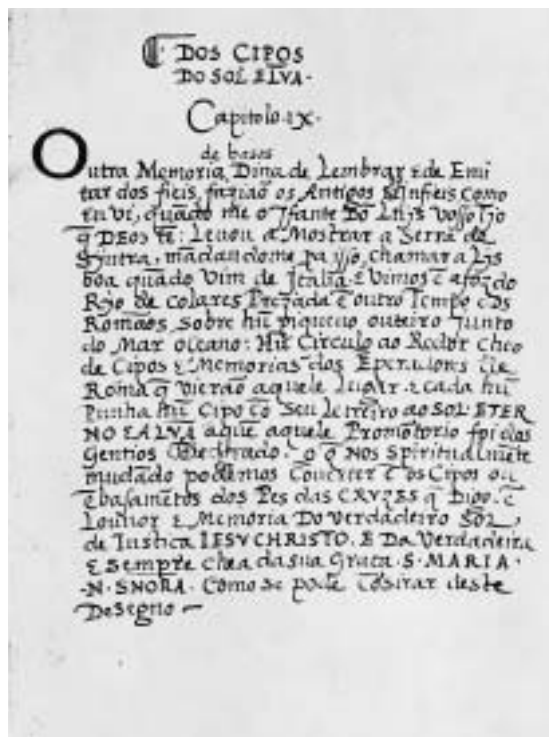 DOS CIPOS
DO SOL E LVA.
Capitolo. IX.
de basos
Outra Memoria Dina de Lembrar E de Emi
tar dos fieis, faziaõ os Antigos Infieis como
Eu vi, quãdo me o Ifante Dõ Luis Vosso tio
q̃ DEos tẽ: Levou a Mostrar a Serra de
Syntra, mãdandome pa isso, chamar a Lis
boa quãdo Vim de Italia. E Vimos ẽ a foz do
Ryo de Colares Prezada ẽ outro Tempo dos
Romãos Sobre hũ piqueno outeiro Junto
do Mar oceano: Hũ Circulo ao Redor cheo
de Cipos E Memorias dos Eperadores de
Roma q̃ Vierão aquele Lugar. E cada hũ
Punha hũ Cipo cõ Seu Letreiro ao SOL ETER
NO E A LVA aquẽ aquele Promotorio foi dos
Gentios Dedicado. O q̃ Nos Spiritualmẽte
mudãdo podemos Cõverter ẽ os Cipos ou
ẽbasamẽtos dos Pes das CRVZES q̃ Digo. ẽ
Louvor E Memoria Do Verdadeiro SOL,
de Iustiça IESV CHRISTO. E Da Verdadeira
E Sempre chea da sua Graça. S. MARIA.
.N. SNORA. Como se pode Cõsirar deste
DeSegno